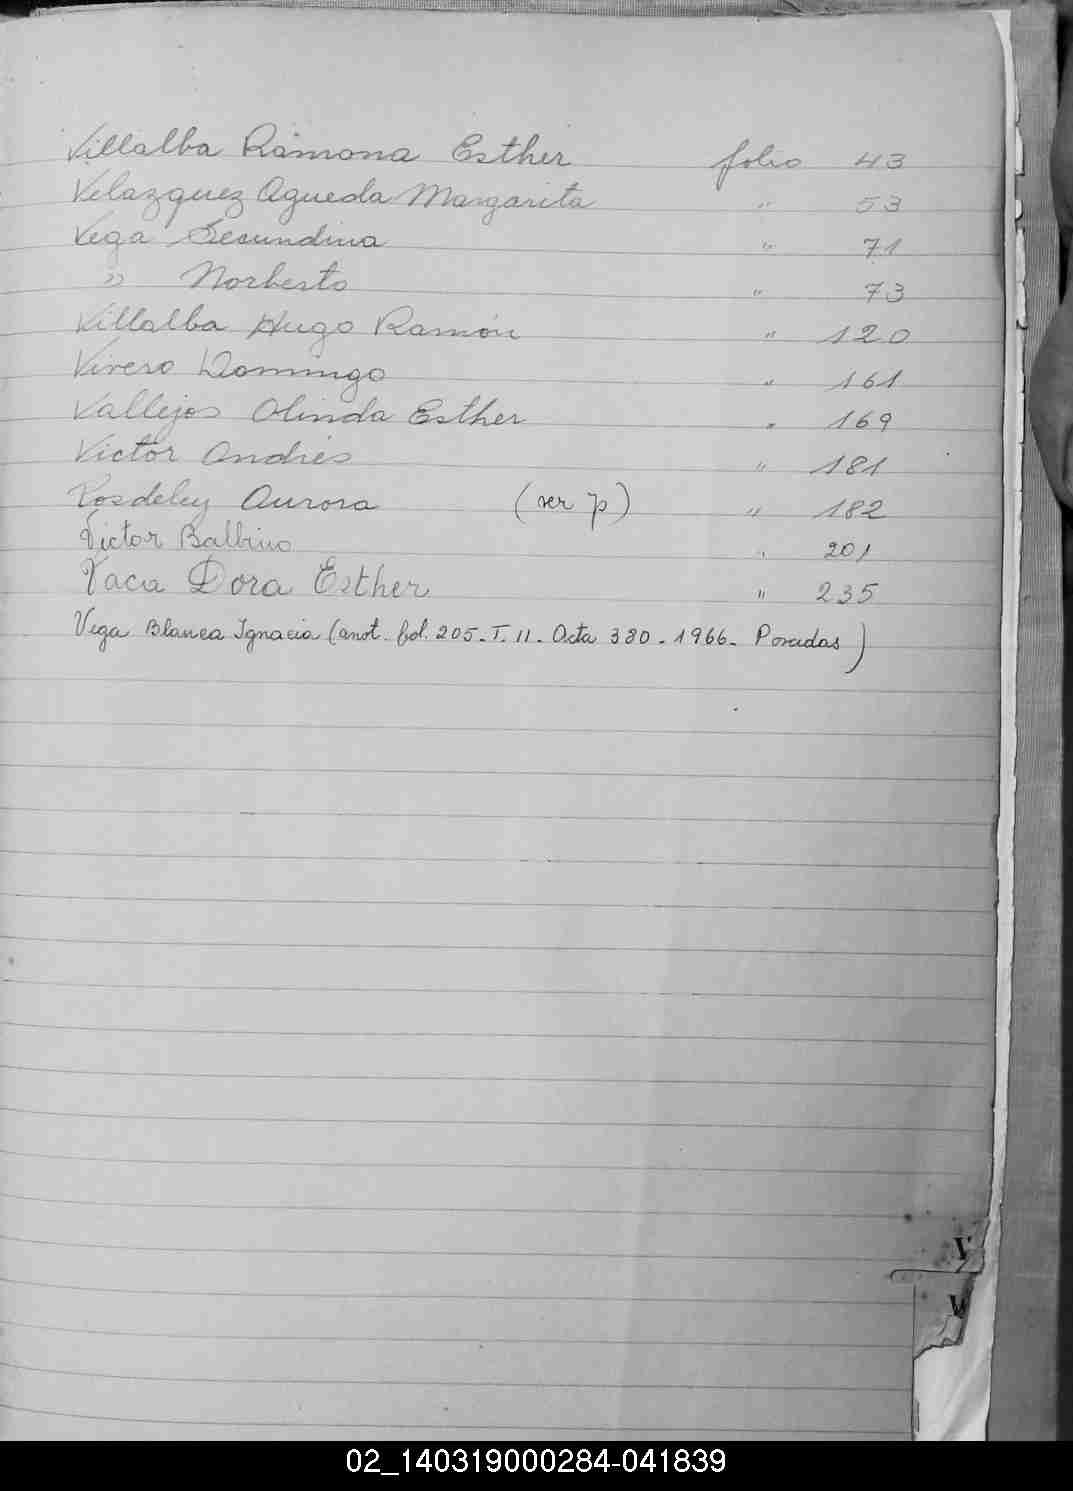 Villalba Ramona Esther folio 43
Velazquez Agueda Margarita " 53
Vega Secundina " 71
" Norberto " 73
Villalba Hugo Ramón " 120
Vivero Domingo " 161
Vallejos Olinda Esther " 169
Victor Andrés " 181
Aurora (ver p) " 182
Victor Balbino " 201
Vaca Dora Esther " 235
Vega Blanca Ignacia (anot. fol. 205. T. 11. Acta 380. 1966. Posadas)
V
W
02_140319000284-041839